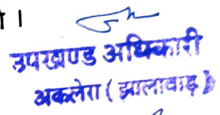 ।
उपखण्ड अधिकारी
अकलेरा (झालावाड़)